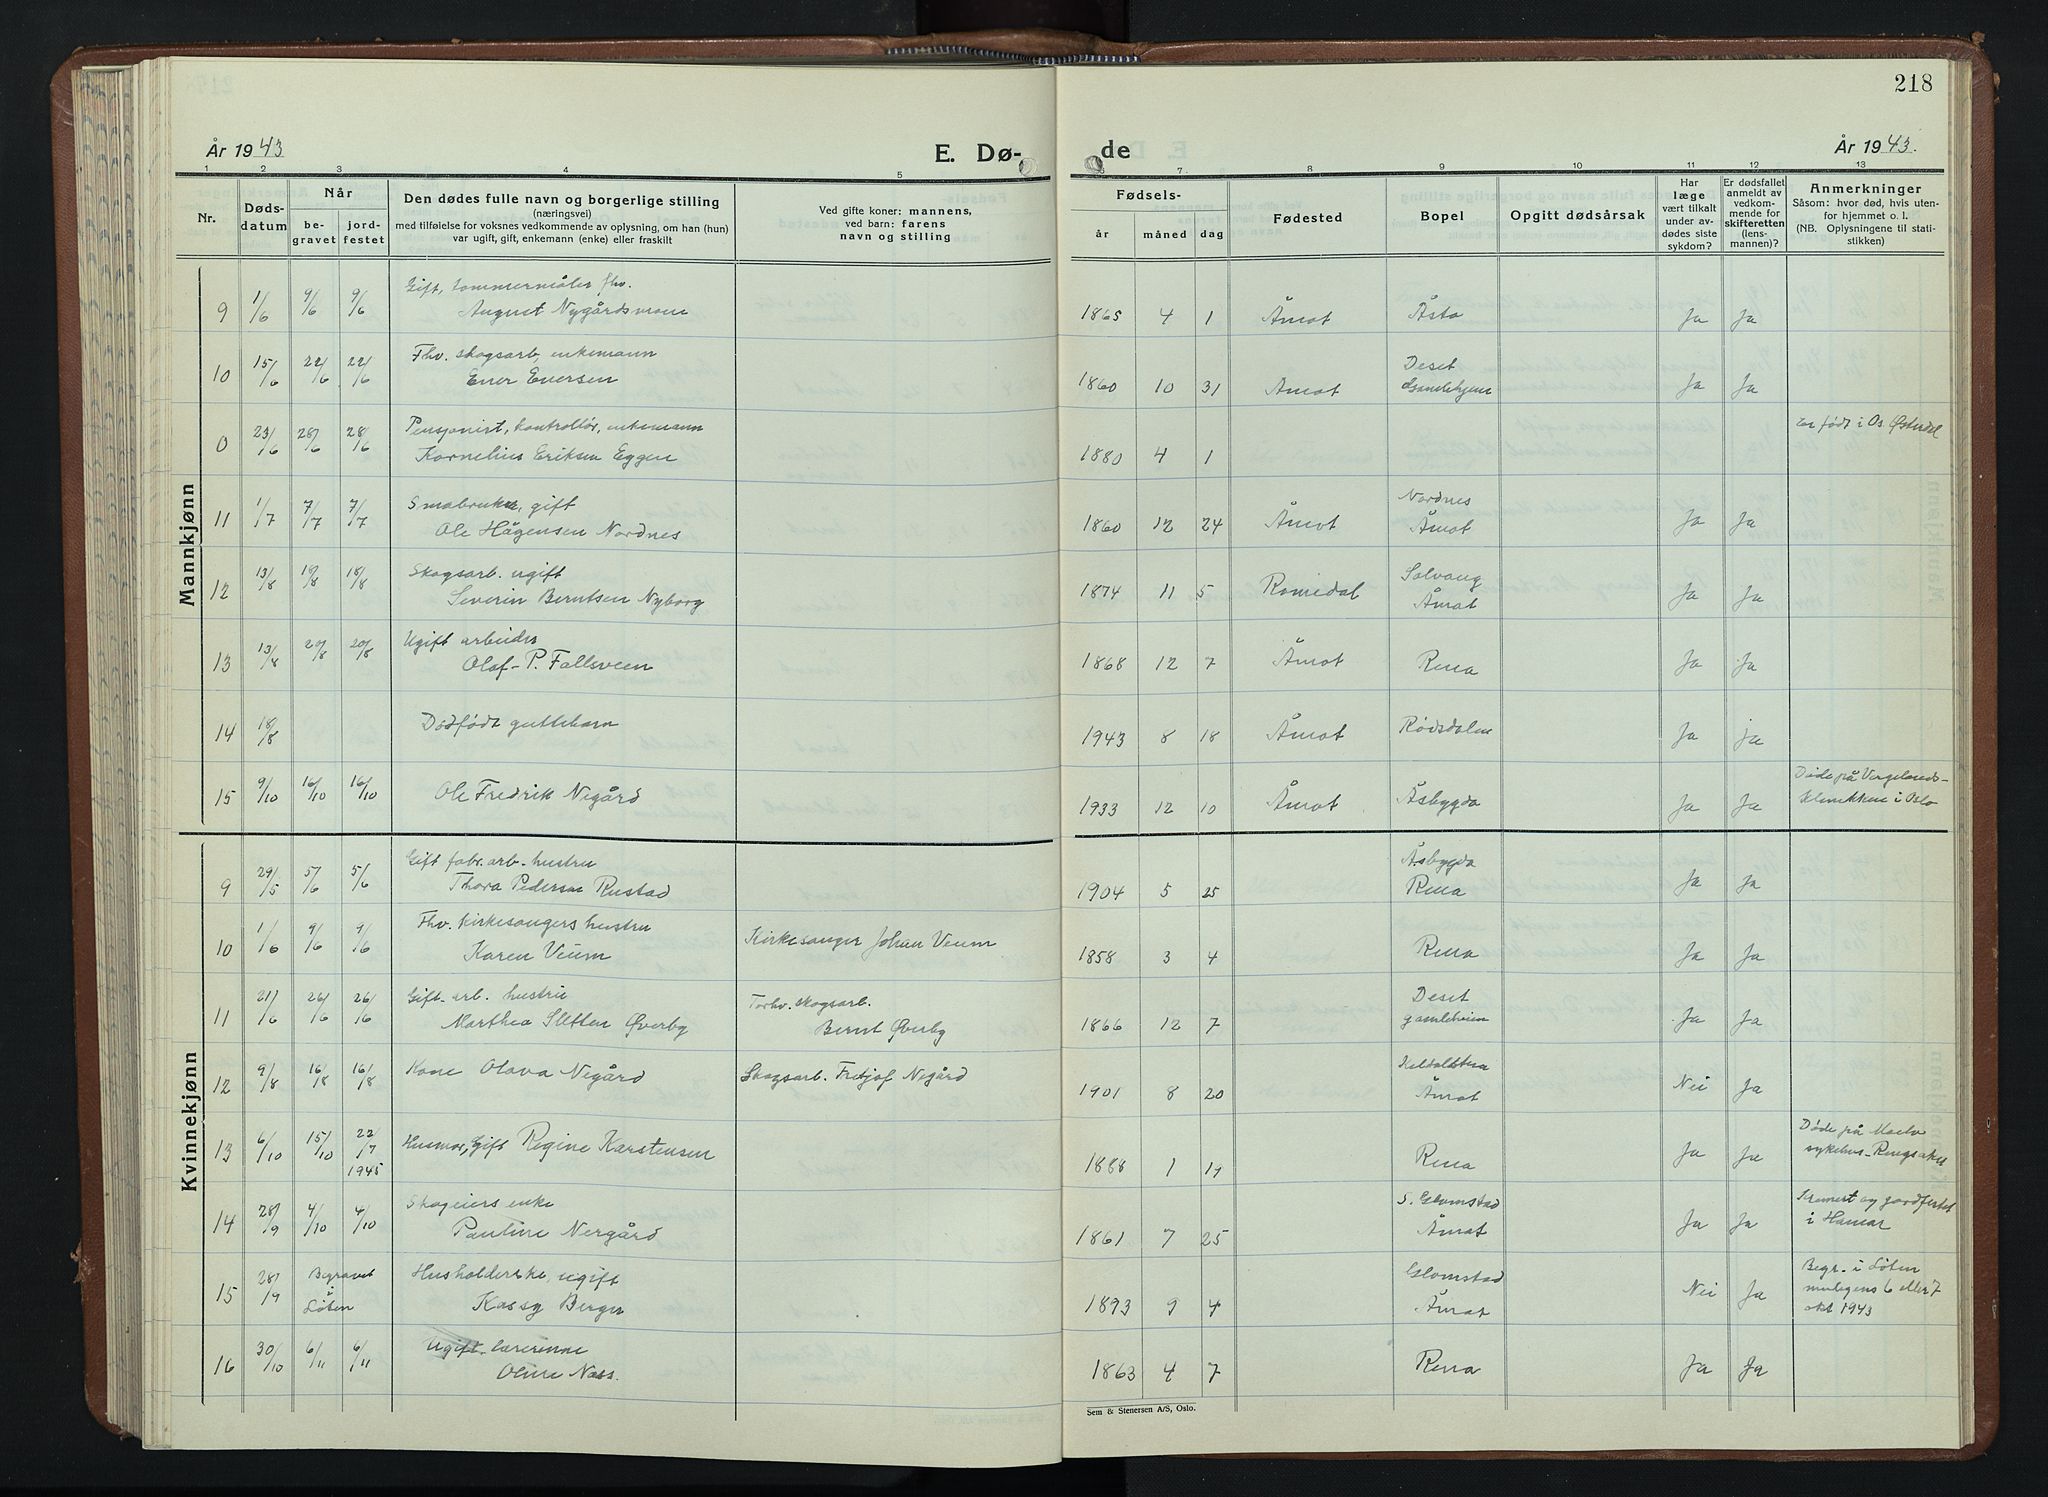 218
År 1943
E. Dø-
de
År 1943.
1 2 3 4 5 6 7. 8 9 10 11 12 13
Nr.
Døds-
datum
Når
be-
gravet
jord-
festet
Den dødes fulle navn og borgerlige stilling
(næringsvei)
med tilføielse for voksnes vedkommende av oplysning, om han (hun)
var ugift, gift, enkemann (enke) eller fraskilt
Ved gifte koner: mannens,
ved barn: farens
navn og stilling
Fødsels-
år måned dag
Fødested
Bopel
Opgitt dødsårsak
Har
læge
vært tilkalt
under av-
dødes siste
sykdom?
Er dødsfallet
anmeldt av
vedkom-
mende for
skifteretten
(lens-
mannen)?
Anmerkninger
Såsom: hvor død, hvis uten-
for hjemmet o. l.
(NB. Oplysningene til stati-
stikken)
Mannkjønn
Gift, tømmermåler fhv.
9 1/6 9/6 9/6 August Nygårdsmoen 1865 4 1 Åmot Åsta Ja Ja
Fhv. skogsarb, enkemann Deset
10 15/6 22/6 22/6 Ener Enersen 1860 10 31 Åmot Gamlehjem Ja Ja
Pensjonist, kontrollør, enkemann Er født i Os. Østerdal
0 23/6 28/6 28/6 Kornelius Eriksen Eggen 1880 4 1
Småbruker, gift Nordnes
11 1/7 7/7 7/7 Ole Hågensen Nordnes 1860 12 24 Åmot Åmot Ja Ja
Skogsarb. ugift Solvang
12 13/8 18/8 18/8 Severin Berntsen Nyborg 1874 11 5 Romedal Åmot Ja Ja
Ugift arbeider
13 13/8 20/8 20/8 Olaf P. Fallsveen 1868 12 7 Åmot Rena Ja Ja
14 18/8 Dødfødt guttebarn 1943 8 18 Åmot Rødsdalen Ja ja
Døde på Vergelands-
15 9/10 16/10 16/10 Ole Fredrik Negård 1933 12 10 Åmot Åsbygda Ja Ja klinikken i Oslo
Kvinnekjønn
Gift fabr. arb. hustru Åsbygda
9 29/5 5/6 5/6 Thora Pedersen Rustad 1904 5 25 Rena Ja Ja
Fhv. Kirkesangers hustru
10 1/6 9/6 9/6 Karen Veum Kirkesanger Johan Veum 1858 3 4 Rena Ja Ja
Gift arb. hustru skogsarb. Deset
11 21/6 26/6 26/6 Marthea Sletten Øverby Bernt Øverby 1866 12 7 gamleheim Ja Ja
12 9/8 16/8 16/8 Kone Olava Negård Skogsarb. Fretjof Negård 1901 8 20 Åmot Nei Ja
13 6/10 15/10 22/7 1945 Husmor, Gift Regine Karstensen 1888 1 Rena Ja Ja Døde på Moelv
sykehus - Ringsaker
Skogeiers enke S. Glomstad Kremert og jordfestet
14 28/9 4/10 4/10 Pauline Nergård 1861 7 25 Åmot Ja Ja i Hamar
Husholderske, ugift Glomstad Begr. i Løten
15 28/9 Begravet i Løten Kassy Berger 1893 9 4 Åmot Nei Ja muligens 6 eller 7
okt 1943
Ugift. lærerinne
16 30/10 6/11 6/11 Oline Næss. 1863 4 7 Rena Ja Ja
Sem & Stenersen A/S, Oslo.